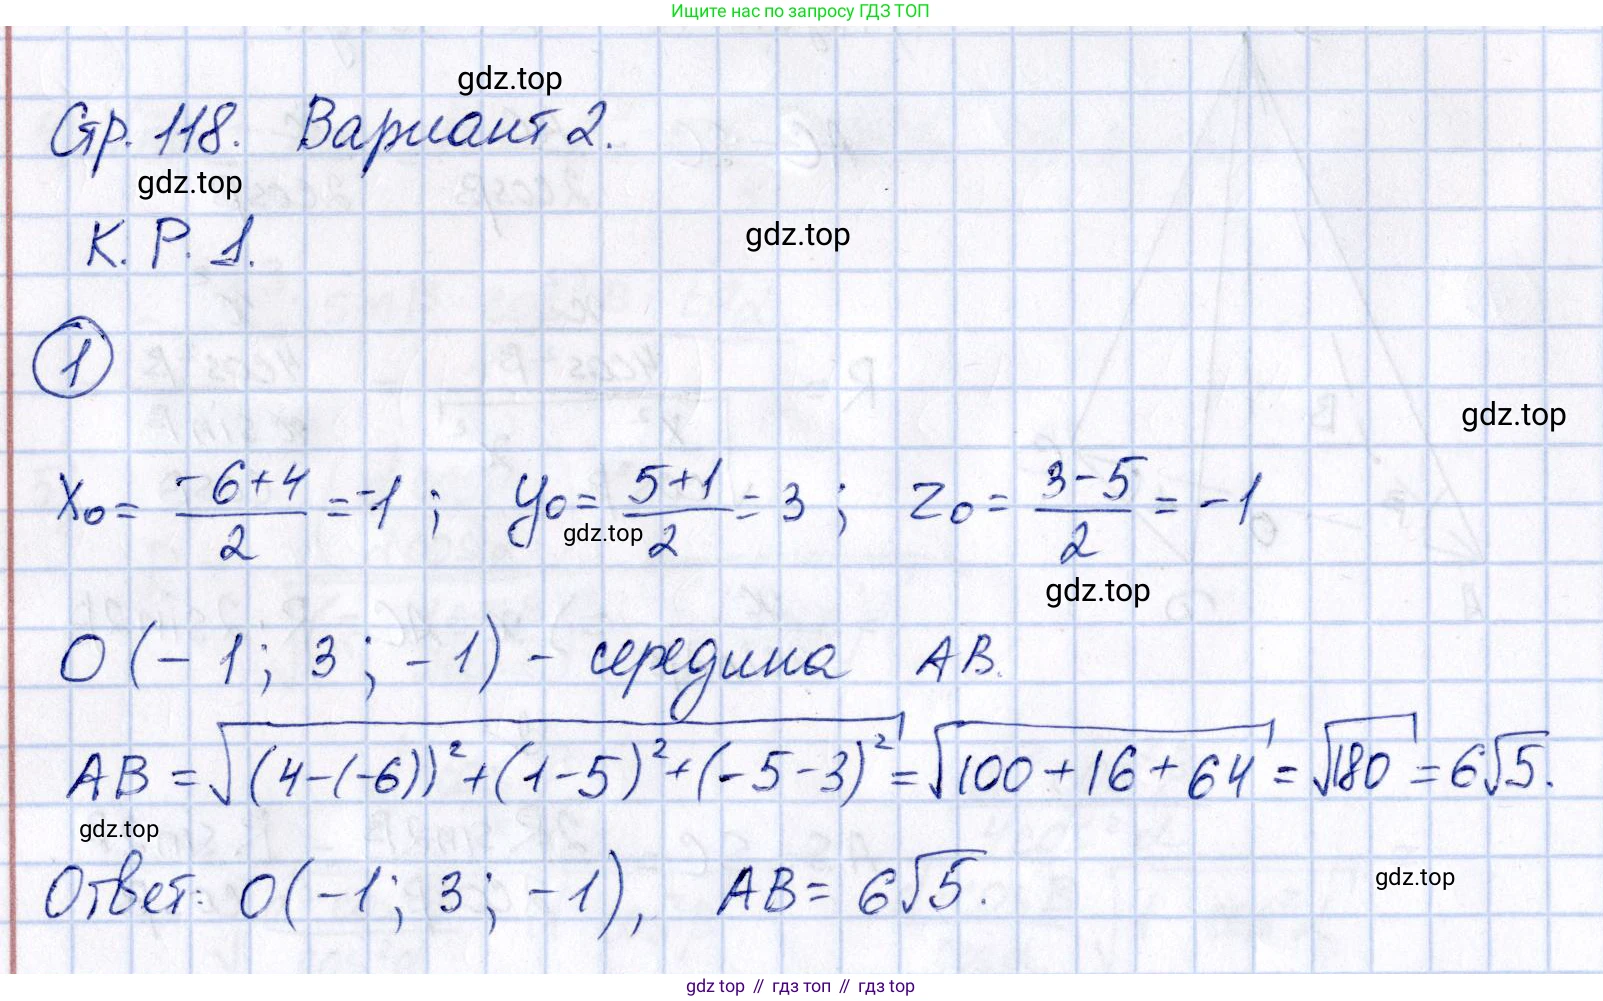 Ищите нас по запросу ГДЗ ТОП
gdz.top
Стр. 118. Вариант 2.
gdz.top
К. Р. 1.
gdz.top
1
gdz.top
x₀ = (-6+4)/2 = -1 ; y₀ = (5+1)/2 = 3 ; z₀ = (3-5)/2 = -1
gdz.top
gdz.top
O (-1; 3; -1) - середина AB.
AB = √((4-(-6))² + (1-5)² + (-5-3)²) = √(100+16+64) = √180 = 6√5.
gdz.top
gdz.top
Ответ: O(-1; 3; -1), AB = 6√5.
gdz top // гдз топ // гдз top